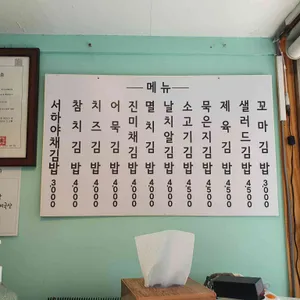 메뉴
서하야채김밥 3000
참치김밥 4000
치즈김밥 4000
어묵김밥 4000
진미채김밥 4000
멸치김밥 4000
날치알김밥 4500
소고기김밥 4500
묵은지김밥 4500
제육김밥 4500
샐러드김밥 4500
꼬마김밥 3000